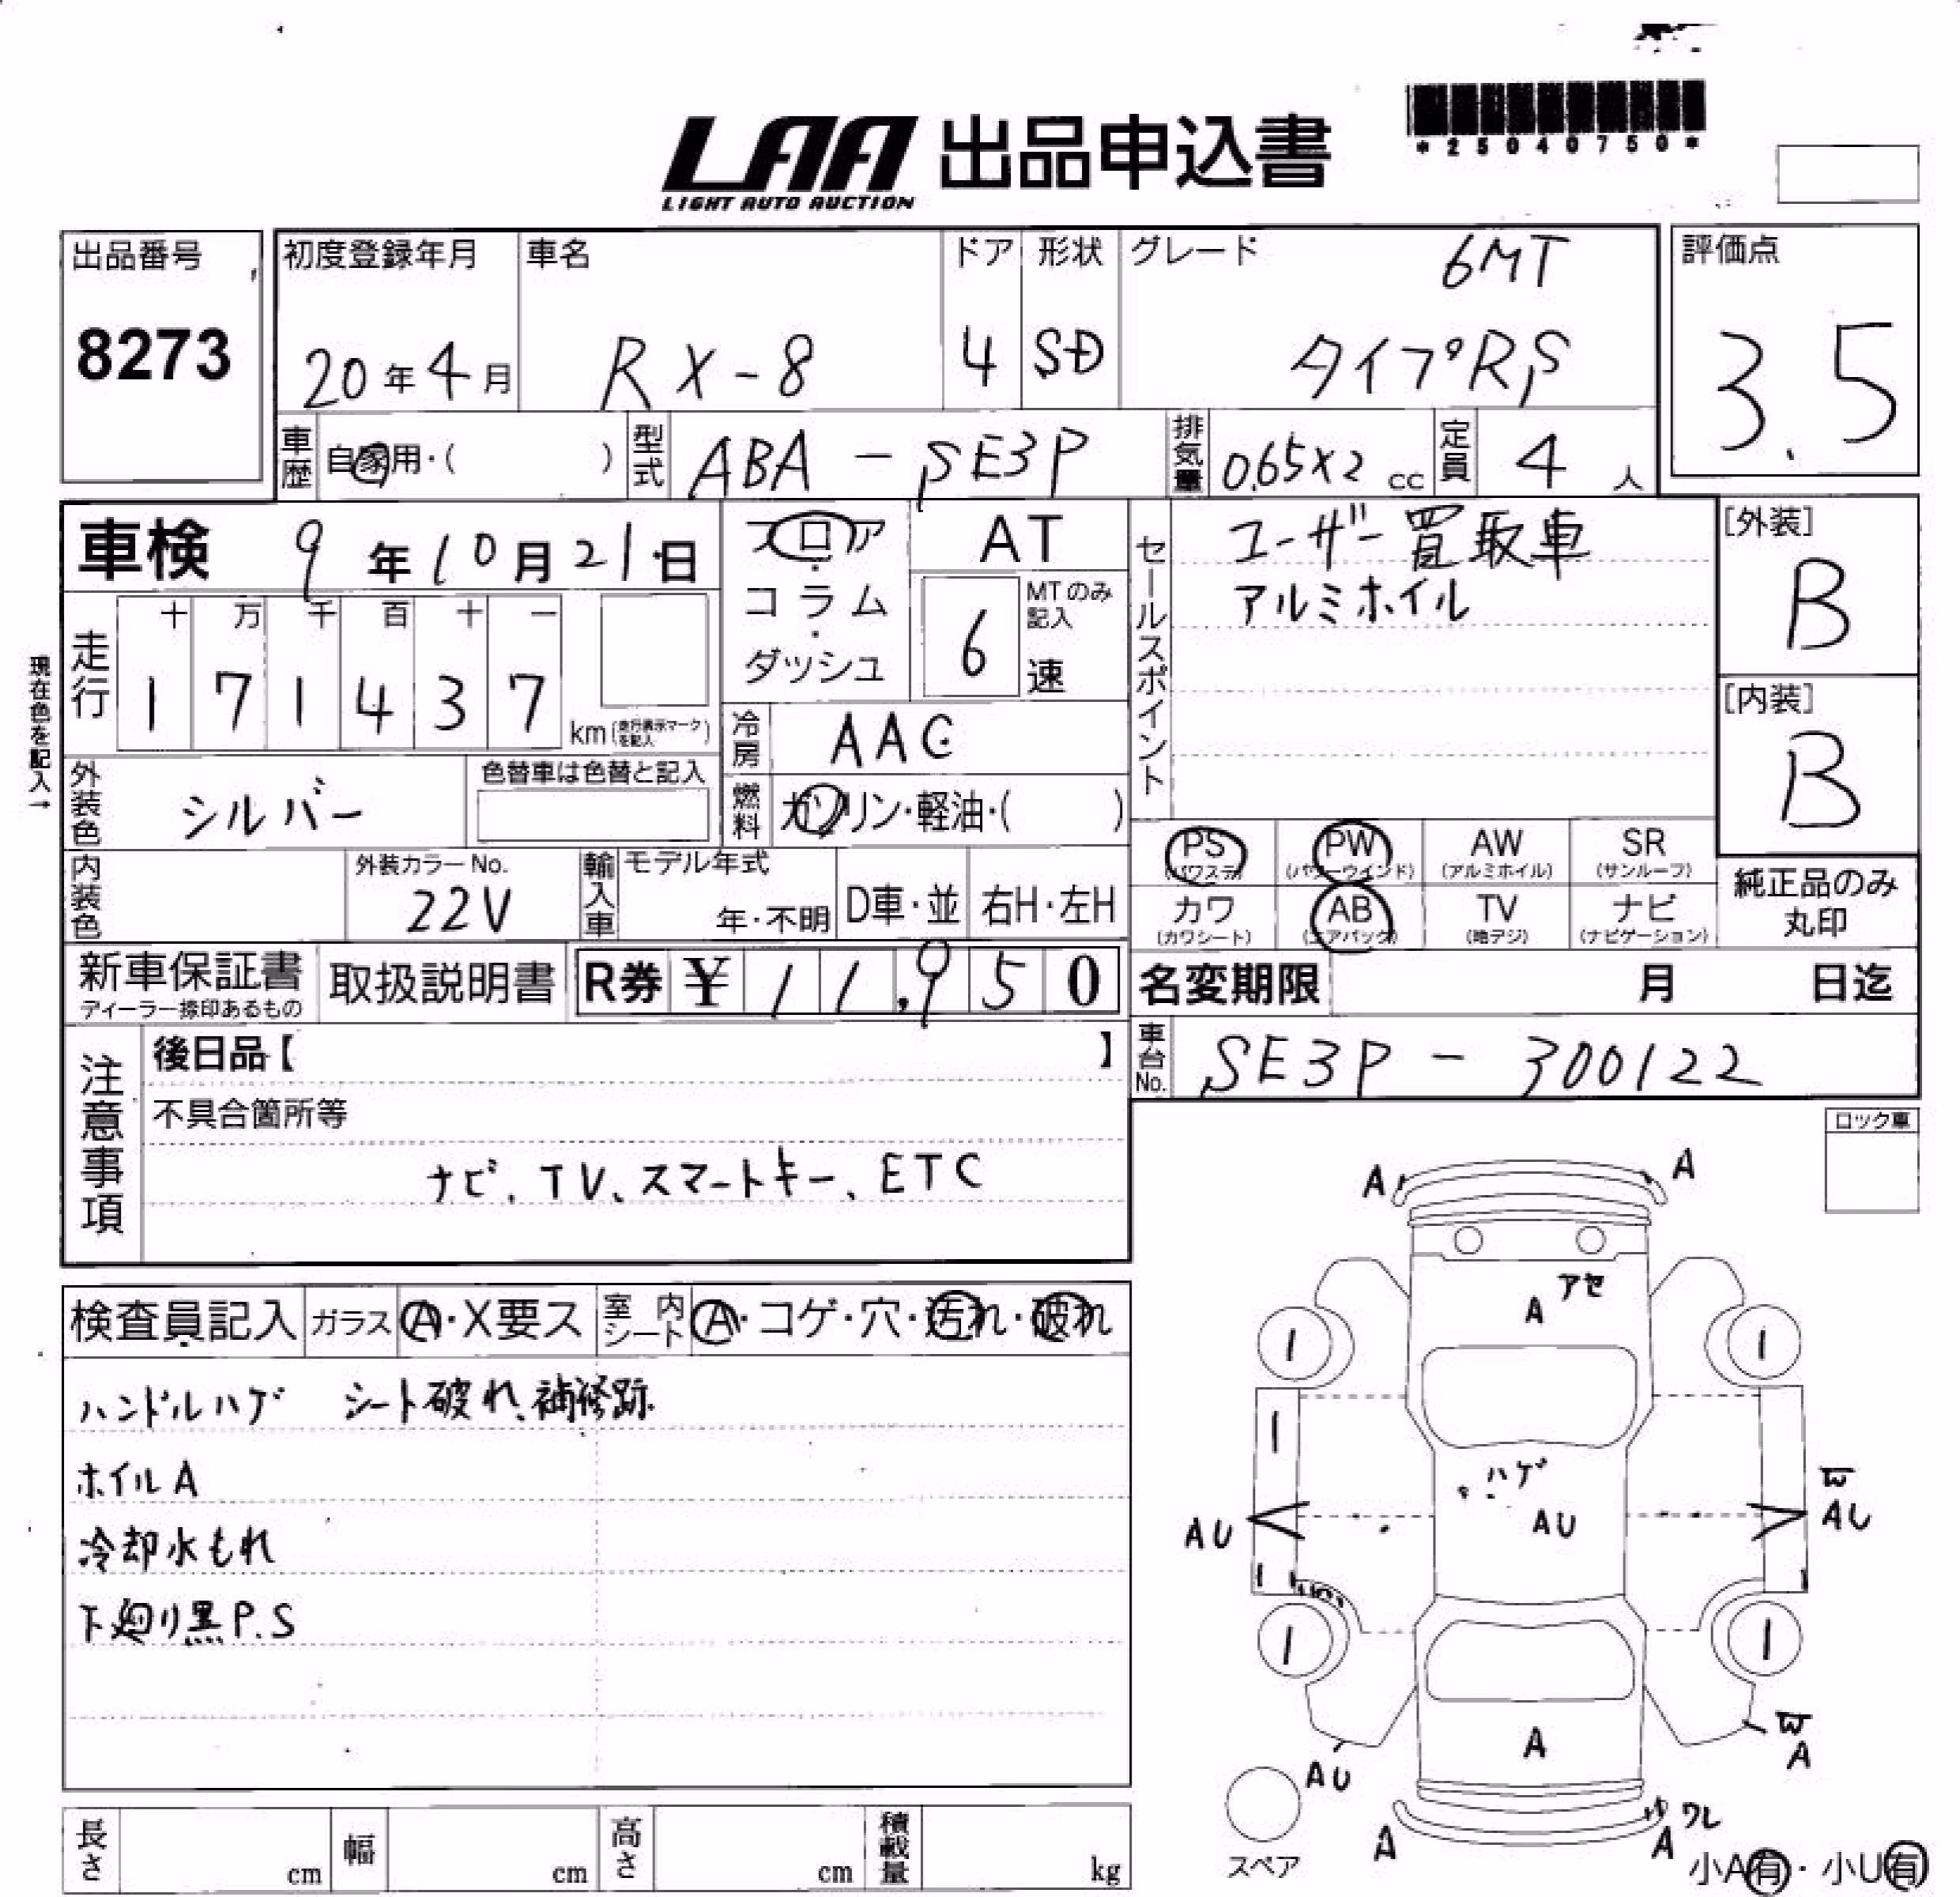 *25040750*
LAA 出品申込書
LIGHT AUTO AUCTION
出品番号
8273
初度登録年月
20年4月
車名
RX-8
ドア
4
形状
SD
グレード
6MT
タイプRS
評価点
3.5
車歴 自家用・( )
型式 ABA-SE3P
排気量 0.65×2 cc
定員 4 人
車検 9年10月21日
フロア・コラム・ダッシュ
AT
6 MTのみ記入 速
セールスポイント
ユーザー買取車
アルミホイル
[外装]
B
[内装]
B
現在色を記入→
走行
十 万 千 百 十 一
1 7 1 4 3 7
km (走行表示マークを記入)
冷房 AAC
外装色 シルバー
色替車は色替と記入
燃料 ガソリン・軽油・( )
内装色
外装カラーNo.
22V
輸入車
モデル年式
年・不明
D車・並
右H・左H
PS (パワステ)
PW (パワーウインド)
AW (アルミホイル)
SR (サンルーフ)
カワ (カワシート)
AB (エアバック)
TV (地デジ)
ナビ (ナビゲーション)
純正品のみ
丸印
新車保証書
ディーラー捺印あるもの
取扱説明書
R券 ¥ 11,950
名変期限 月 日迄
車台No. SE3P-300122
注意事項
後日品【 】
不具合箇所等
ナビ、TV、スマートキー、ETC
ロック車
検査員記入
ガラス A・X要ス
室内シート A・コゲ・穴・汚れ・破れ
ハンドルハゲ シート破れ、補修跡
ホイルA
冷却水もれ
下廻り黒P.S
A A
アセ
A
ハゲ
AU
AU
W
AU
A
AU
W
A
A
ワレ
A
スペア
小A有・小U有
長さ cm
幅 cm
高さ cm
積載量 kg